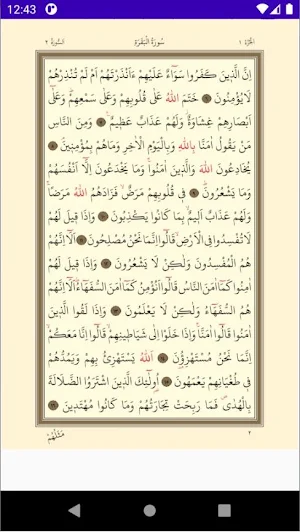 12:43
الجزء ١ سورة البقرة السورة ٢
اِنَّ الَّذ۪ينَ كَفَرُوا سَوَٓاءٌ عَلَيْهِمْ ءَاَنْذَرْتَهُمْ اَمْ لَمْ تُنْذِرْهُمْ
لَا يُؤْمِنُونَ ﴿٦﴾ خَتَمَ اللّٰهُ عَلٰى قُلُوبِهِمْ وَعَلٰى سَمْعِهِمْ وَعَلٰٓى
اَبْصَارِهِمْ غِشَاوَةٌ وَلَهُمْ عَذَابٌ عَظ۪يمٌ ﴿٧﴾ وَمِنَ النَّاسِ
مَنْ يَقُولُ اٰمَنَّا بِاللّٰهِ وَبِالْيَوْمِ الْاٰخِرِ وَمَا هُمْ بِمُؤْمِن۪ينَ ﴿٨﴾
يُخَادِعُونَ اللّٰهَ وَالَّذ۪ينَ اٰمَنُوا وَمَا يَخْدَعُونَ اِلَّٓا اَنْفُسَهُمْ
وَمَا يَشْعُرُونَ ﴿٩﴾ ف۪ي قُلُوبِهِمْ مَرَضٌ فَزَادَهُمُ اللّٰهُ مَرَضًا
وَلَهُمْ عَذَابٌ اَل۪يمٌ بِمَا كَانُوا يَكْذِبُونَ ﴿١٠﴾ وَاِذَا ق۪يلَ لَهُمْ
لَا تُفْسِدُوا فِي الْاَرْضِ قَالُٓوا اِنَّمَا نَحْنُ مُصْلِحُونَ ﴿١١﴾ اَلَٓا اِنَّهُمْ
هُمُ الْمُفْسِدُونَ وَلٰكِنْ لَا يَشْعُرُونَ ﴿١٢﴾ وَاِذَا ق۪يلَ لَهُمْ
اٰمِنُوا كَمَٓا اٰمَنَ النَّاسُ قَالُٓوا اَنُؤْمِنُ كَمَٓا اٰمَنَ السُّفَهَٓاءُ اَلَٓا اِنَّهُمْ
هُمُ السُّفَهَٓاءُ وَلٰكِنْ لَا يَعْلَمُونَ ﴿١٣﴾ وَاِذَا لَقُوا الَّذ۪ينَ
اٰمَنُوا قَالُٓوا اٰمَنَّا وَاِذَا خَلَوْا اِلٰى شَيَاط۪ينِهِمْ قَالُٓوا اِنَّا مَعَكُمْ
اِنَّمَا نَحْنُ مُسْتَهْزِؤُ۫نَ ﴿١٤﴾ اَللّٰهُ يَسْتَهْزِئُ بِهِمْ وَيَمُدُّهُمْ
ف۪ي طُغْيَانِهِمْ يَعْمَهُونَ ﴿١٥﴾ اُو۬لٰٓئِكَ الَّذ۪ينَ اشْتَرَوُا الضَّلَالَةَ
بِالْهُدٰى فَمَا رَبِحَتْ تِجَارَتُهُمْ وَمَا كَانُوا مُهْتَد۪ينَ ﴿١٦﴾
٢ مَثَلُهُمْ